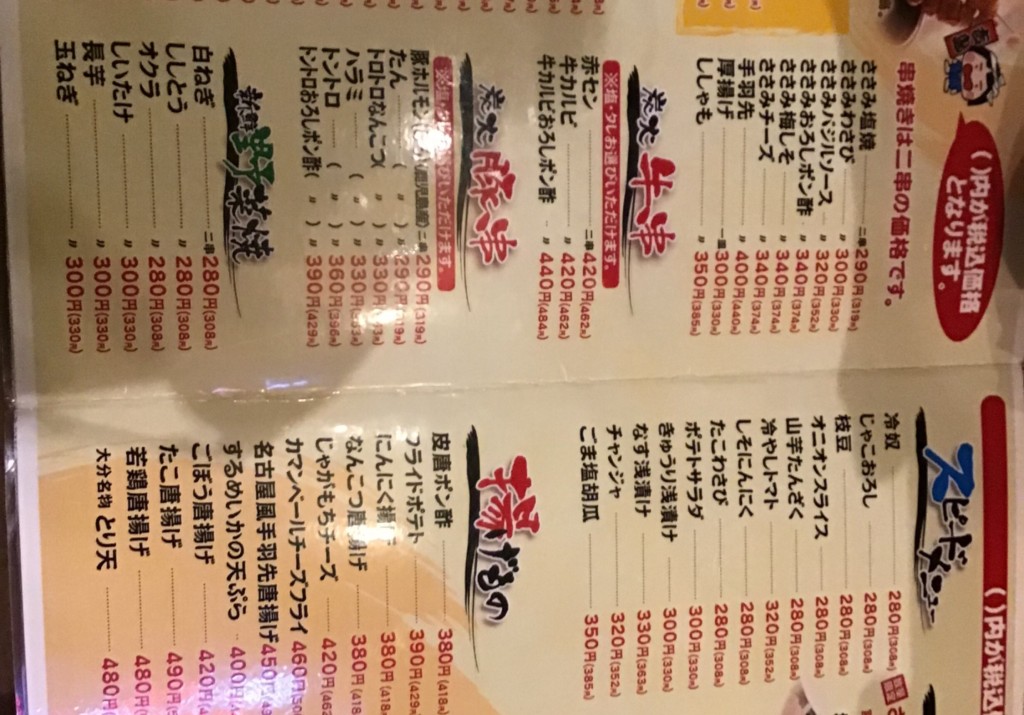 ( )内が税込価格
となります。
串焼きは二串の価格です。
ささみ塩焼 二串 290円(319円)
ささみわさび 〃 300円(330円)
ささみバジルソース 〃 320円(352円)
ささみおろしポン酢 〃 340円(374円)
ささみ梅しそ 〃 340円(374円)
ささみチーズ 〃 340円(374円)
手羽先 〃 400円(440円)
厚揚げ 一個 300円(330円)
ししゃも 〃 350円(385円)
炭火 牛串
※塩・タレお選びいただけます。
赤セン 二串 420円(462円)
牛カルビ 〃 420円(462円)
牛カルビおろしポン酢 〃 440円(484円)
炭火 豚串
塩・タレお選びいただけます。
豚ホルモン (鹿児島産) 二串 290円(319円)
たん ( 〃 ) 〃 290円(319円)
トロトロなんこつ( 〃 ) 〃 330円
ハラミ ( 〃 ) 〃 330円
トントロ ( 〃 ) 〃 360円(396円)
トントロおろしポン酢( 〃 ) 〃 390円(429円)
新鮮野菜焼
白ねぎ 二串 280円(308円)
ししとう 〃 280円(308円)
オクラ 〃 280円(308円)
しいたけ 〃 300円(330円)
長芋 〃 300円(330円)
玉ねぎ 〃 300円(330円)
( )内が税込
スピードメニュー
冷奴 280円(308円)
じゃこおろし 280円(308円)
枝豆 280円(308円)
オニオンスライス 280円(308円)
山芋たんざく 280円(308円)
冷やしトマト 320円(352円)
しそにんにく 280円(308円)
たこわさび 280円(308円)
ポテトサラダ 300円(330円)
きゅうり浅漬け 300円(330円)
なす浅漬け 330円(363円)
チャンジャ 320円(352円)
ごま塩胡瓜 350円(385円)
揚げもの
皮唐ポン酢 380円(418円)
フライドポテト 390円(429円)
にんにく揚げ 380円(418
なんこつ唐揚げ 380円(418
じゃがもちチーズ 420円(462
カマンベールチーズフライ 460円(50
名古屋風手羽先唐揚げ 450円(49
するめいかの天ぷら 400円(4
ごぼう唐揚げ 420円(4
たこ唐揚げ 490円(5
若鶏唐揚げ 480円(
大分名物 とり天 480円(